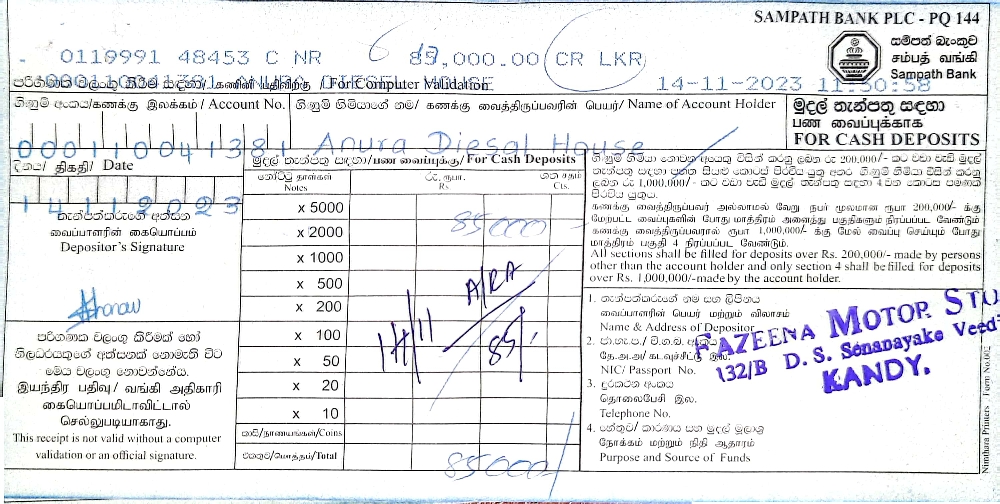 SAMPATH BANK PLC - PQ 144
සම්පත් බැංකුව
சம்பத் வங்கி
Sampath Bank
0119991 48453 C NR 85,000.00 CR LKR
000110041381 ANURA DIESEL HOUSE 14-11-2023 11:50:58
පරිගණක වලංගු කිරීම සඳහා/ கணினி பதிவிற்கு /For Computer Validation
ගිණුම් අංකය/கணக்கு இலக்கம் / Account No.
ගිණුම් හිමියාගේ නම/ கணக்கு வைத்திருப்பவரின் பெயர்/ Name of Account Holder
මුදල් තැන්පතු සඳහා
பண வைப்புக்காக
FOR CASH DEPOSITS
000110041381 Anura Diesal House
දිනය/ திகதி/ Date
14112023
මුදල් තැන්පතු සඳහා/பண வைப்புக்கு/For Cash Deposits
නෝට්ටු தாள்கள்
Notes
රු. ரூபா.
Rs.
ශත சதம்
Cts.
x 5000
85000
x 2000
x 1000
x 500
x 200
x 100
x 50
x 20
x 10
14/11
85/-
කාසි/நாணயங்கள்/Coins
එකතුව/மொத்தம்/Total
85000/
තැන්පත්කරුගේ අත්සන
வைப்பாளரின் கையொப்பம்
Depositor's Signature
පරිගණක වලංගු කිරීමක් හෝ
නිලධරයකුගේ අත්සනක් නොමැති විට
මෙය වලංගු නොවන්නේය.
இயந்திர பதிவு/ வங்கி அதிகாரி
கையொப்பமிடாவிட்டால்
செல்லுபடியாகாது.
This receipt is not valid without a computer
validation or an official signature.
கணக்கு வைத்திருப்பவர் அல்லாமல் வேறு நபர் மூலமான ரூபா 200,000/- க்கு
மேற்பட்ட வைப்புகளின் போது மாத்திரம் அனைத்து பகுதிகளும் நிரப்பப்பட வேண்டும்
கணக்கு வைத்திருப்பவரால் ரூபா 1,000,000/- க்கு மேல் வைப்பு செய்யும் போது
மாத்திரம் பகுதி 4 நிரப்பப்பட வேண்டும்.
All sections shall be filled for deposits over Rs. 200,000/- made by persons
other than the account holder and only section 4 shall be filled for deposits
over Rs. 1,000,000/-made by the account holder.
1. තැන්පත්කරුගේ නම සහ ලිපිනය
வைப்பாளரின் பெயர் மற்றும் விலாசம்
Name & Address of Depositor
2. ජා.හැ.ප./ වි.ග.බ. අංකය
தே.அ.அ/ கடவுச்சீட்டு இல.
NIC/ Passport No.
3. දුරකථන අංකය
தொலைபேசி இல.
Telephone No.
4. හේතුව/ කාරණය සහ මුදල් මූලාශ්‍ර
நோக்கம் மற்றும் நிதி ஆதாரம்
Purpose and Source of Funds
FAZEENA MOTOR
132/B D. S. Senanayake Veed
KANDY.
Nimthara Printers - Form No.002